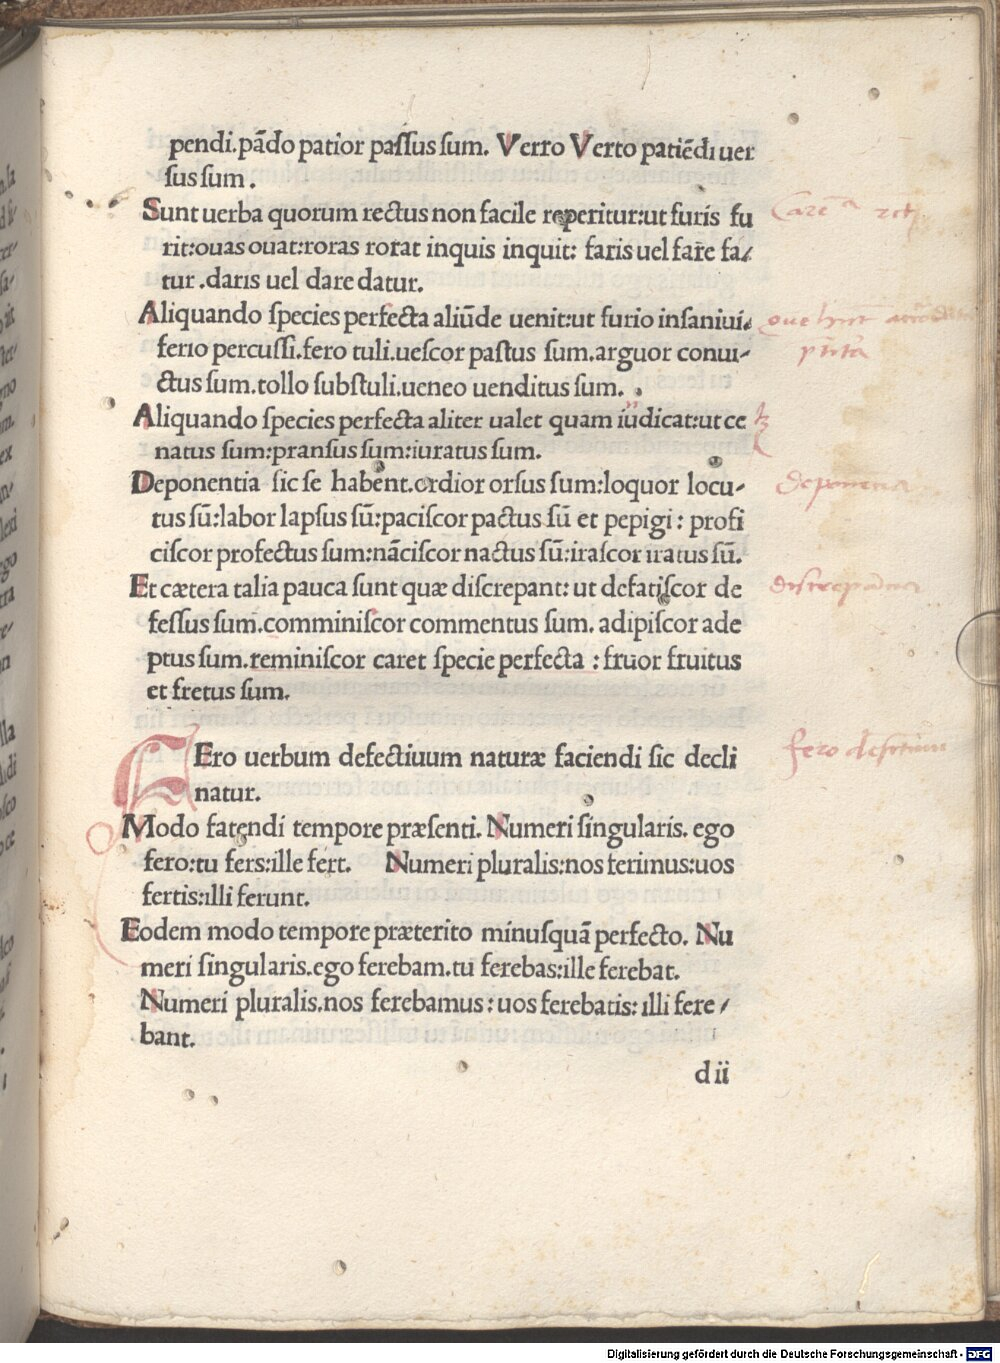 pendi.pādo patior paſſus ſum. Verro Verto patiēdi uer
ſus ſum .
Sunt uerba quorum rectus non facile reperitur:ut furis fu
rit:ouas ouat:roras rorat inquis inquit: faris uel fare fa/
tur .daris uel dare datur.
Aliquando ſpecies perfecta aliūde uenit:ut furio inſaniui.
ferio percuſſi.fero tuli.ueſcor paſtus ſum.arguor conui/
ctus ſum.tollo ſubſtuli.ueneo uenditus ſum.
Aliquando ſpecies perfecta aliter ualet quam iudicat:ut ce
natus ſum:pranſus ſum:iuratus ſum.
Deponentia ſic ſe habent.ordior orſus ſum:loquor locu/
tus sū:labor lapſus sū:paciſcor pactus sū et pepigi : profi
ciſcor profectus ſum:nāciſcor nactus sū:iraſcor iratus sū.
Et cætera talia pauca ſunt quæ diſcrepant: ut defatiſcor de
feſſus ſum.comminiſcor commentus ſum. adipiſcor ade
ptus ſum.reminiſcor caret ſpecie perfecta : fruor fruitus
et fretus ſum.
FEro uerbum defectiuum naturæ faciendi ſic decli
natur.
Modo fatendi tempore præſenti. Numeri ſingularis. ego
fero:tu fers:ille fert. Numeri pluralis:nos ferimus:uos
fertis:illi ferunt.
Eodem modo tempore præterito minuſquā perfecto. Nu
meri ſingularis.ego ferebam.tu ferebas:ille ferebat.
Numeri pluralis.nos ferebamus : uos ferebatis: illi fere /
bant.
d ii
deponentia
Digitalisierung gefördert durch die Deutsche Forschungsgemeinschaft - DFG